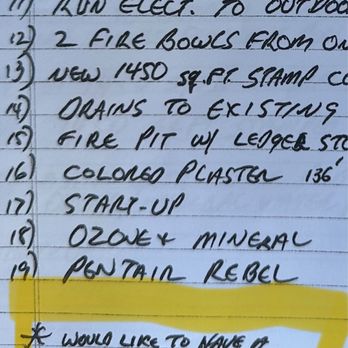 11) RUN ELECT. TO OUTDOO
12) 2 FIRE BOWLS FROM ON
13) NEW 1450 SQ.FT. STAMP CO
14) DRAINS TO EXISTING
15) FIRE PIT W/ LEDGER STO
16) COLORED PLASTER 136'
17) START-UP
18) OZONE & MINERAL
19) PENTAIR REBEL
* WOULD LIKE TO HAVE A